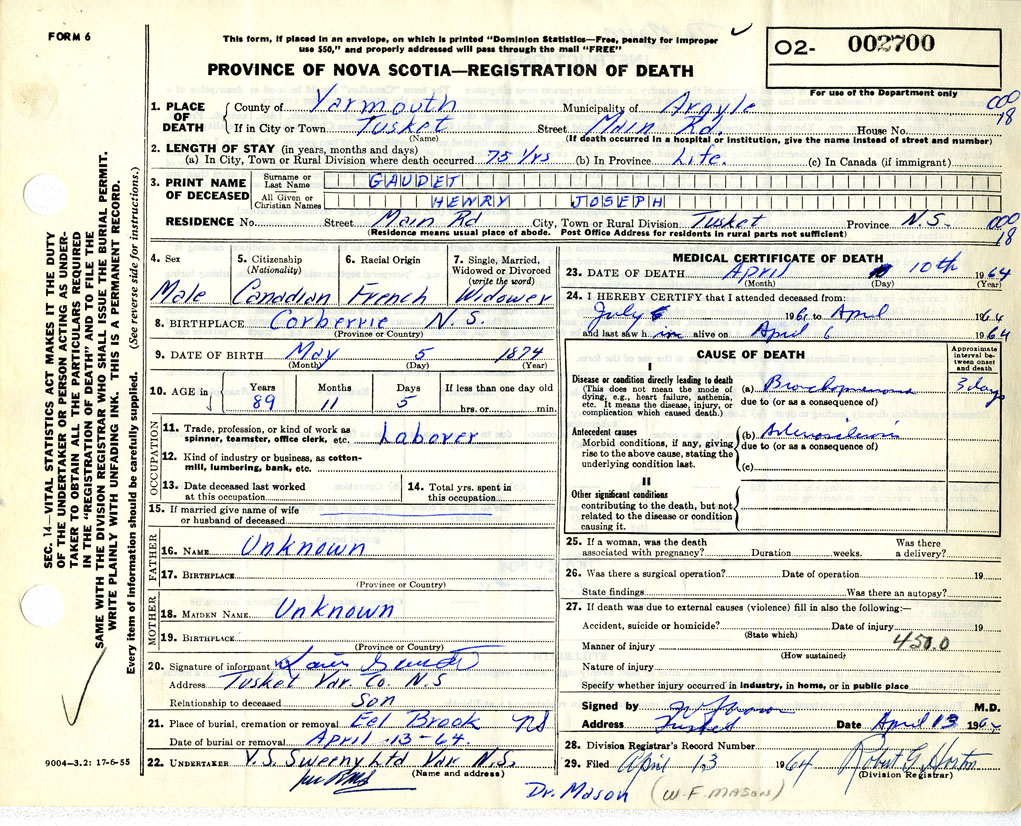 FORM 6
This form, if placed in an envelope, on which is printed "Dominion Statistics—Free, penalty for improper
use $50," and properly addressed will pass through the mail "FREE"
O2- 002700
For use of the Department only
PROVINCE OF NOVA SCOTIA—REGISTRATION OF DEATH
000
18
1. PLACE OF DEATH
County of Yarmouth Municipality of Argyle
If in City or Town Tusket Street Main Rd. House No.
(Name) (If death occurred in a hospital or institution, give the name instead of street and number)
2. LENGTH OF STAY (in years, months and days)
(a) In City, Town or Rural Division where death occurred 75 Yrs (b) In Province Life. (c) In Canada (if immigrant)
3. PRINT NAME OF DECEASED
Surname or Last Name GAUDET
All Given or Christian Names HENRY JOSEPH
RESIDENCE No. Street Main Rd City, Town or Rural Division Tusket Province N.S.
000
18
(Residence means usual place of abode. Post Office Address for residents in rural parts not sufficient)
4. Sex
Male
5. Citizenship (Nationality)
Canadian
6. Racial Origin
French
7. Single, Married, Widowed or Divorced (write the word)
Widower
8. BIRTHPLACE Corberrie N.S.
(Province or Country)
9. DATE OF BIRTH May 5 1874
(Month) (Day) (Year)
10. AGE in
Years Months Days If less than one day old
89 11 5 hrs. or min.
OCCUPATION
11. Trade, profession, or kind of work as spinner, teamster, office clerk, etc. Laborer
12. Kind of industry or business, as cotton-mill, lumbering, bank, etc.
13. Date deceased last worked at this occupation
14. Total yrs. spent in this occupation
15. If married give name of wife or husband of deceased
FATHER
16. NAME Unknown
17. BIRTHPLACE
(Province or Country)
MOTHER
18. MAIDEN NAME Unknown
19. BIRTHPLACE
(Province or Country)
20. Signature of informant
Address Tusket Yar. Co. N.S
Relationship to deceased Son
21. Place of burial, cremation or removal Eel Brook NS
Date of burial or removal April -13-64.
22. UNDERTAKER V.S. Sweeny Ltd Yar N.S.
(Name and address)
MEDICAL CERTIFICATE OF DEATH
23. DATE OF DEATH April 10th 1964
(Month) (Day) (Year)
24. I HEREBY CERTIFY that I attended deceased from:
July 196 to April 1964
and last saw him alive on April 6 1964
CAUSE OF DEATH
Approximate interval between onset and death
I
Disease or condition directly leading to death
(This does not mean the mode of dying, e.g., heart failure, asthenia, etc. It means the disease, injury, or complication which caused death.)
(a) Bronchopneumonia 3 days
due to (or as a consequence of)
Antecedent causes
Morbid conditions, if any, giving rise to the above cause, stating the underlying condition last.
(b) Arteriosclerosis
due to (or as a consequence of)
(c)
II
Other significant conditions
contributing to the death, but not related to the disease or condition causing it.
25. If a woman, was the death associated with pregnancy? Duration weeks. Was there a delivery?
26. Was there a surgical operation? Date of operation 19
State findings Was there an autopsy?
27. If death was due to external causes (violence) fill in also the following:—
Accident, suicide or homicide? Date of injury 19
(State which)
450.0
Manner of injury
(How sustained)
Nature of injury
Specify whether injury occurred in industry, in home, or in public place
Signed by M.D.
Address Tusket Date April 13 196
28. Division Registrar's Record Number
29. Filed April 13 1964 Robert G. Horton
(Division Registrar)
Dr. Mason (W.F. MASON)
9004—3.2: 17-6-55
SEC. 14—VITAL STATISTICS ACT MAKES IT THE DUTY
OF THE UNDERTAKER OR PERSON ACTING AS UNDER-
TAKER TO OBTAIN ALL THE PARTICULARS REQUIRED
IN THE "REGISTRATION OF DEATH" AND TO FILE THE
SAME WITH THE DIVISION REGISTRAR WHO SHALL ISSUE THE BURIAL PERMIT.
WRITE PLAINLY WITH UNFADING INK. THIS IS A PERMANENT RECORD.
Every item of information should be carefully supplied. (See reverse side for instructions.)